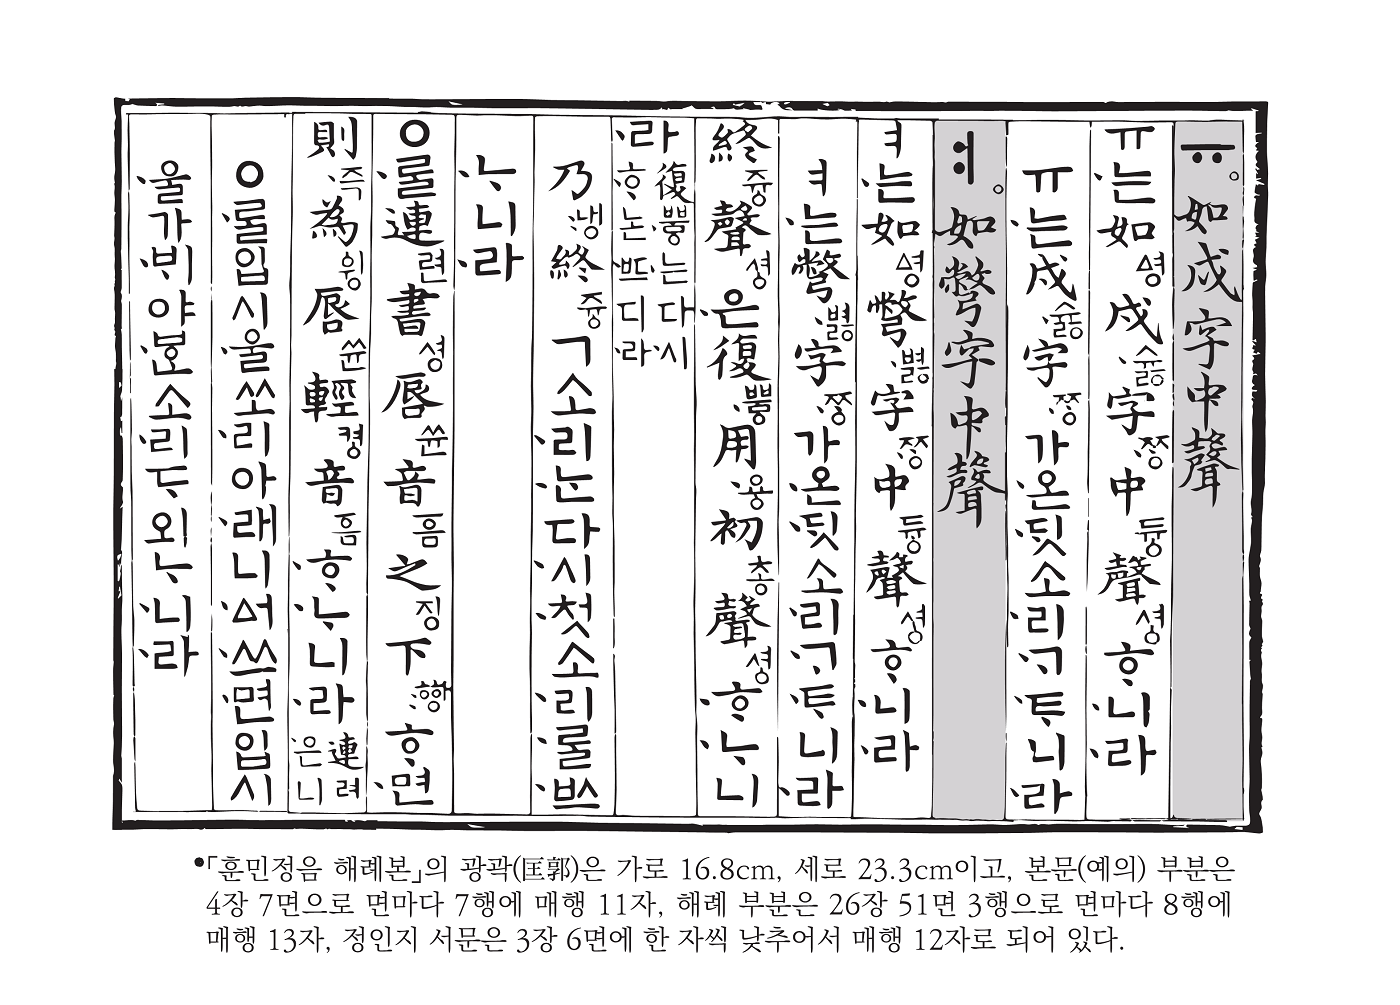 ㅠ。如戌字中聲
ㅠ·는如ᅀᅧᆼ戌·슗字·ᄍᆞᆼ中듀ᇰ聲셩ᄒᆞ·니·라
ㅠ·는戌·슗字·ᄍᆞᆼ가·온·딧소·리·ᄀᆞ·ᄐᆞ니·라
ㅕ。如彆字中聲
ㅕ·는如ᅀᅧᆼ彆·볋字·ᄍᆞᆼ中듀ᇰ聲셩ᄒᆞ·니·라
ㅕ·는彆·볋字·ᄍᆞᆼ가·온·딧소·리·ᄀᆞ·ᄐᆞ니·라
終즁聲셩·은復·뿌ᇢ用·용初총聲셩·ᄒᆞ·ᄂᆞ니
·라復·뿌ᇢ·는다·시·ᄒᆞ논·ᄠᅳ디·라
乃:냉終즁ㄱ소·리·ᄂᆞᆫ다·시·첫소·리·ᄅᆞᆯ·ᄡᅳ
·ᄂᆞ니·라
ㅇ·ᄅᆞᆯ連련書셩唇쓘音ᅙᅳᆷ之징下:ᅘᅡᆼᄒᆞ·면
則·즉為윙唇쓘輕켱音ᅙᅳᆷ·ᄒᆞ·ᄂᆞ니·라連려·은니
ㅇ·ᄅᆞᆯ입시·울쏘·리아·래니·ᅀᅥ·쓰면입시
·울가·ᄇᆡ야·ᄫᆞᆫ소·리ᄃᆞ외·ᄂᆞ·니·라
•「훈민정음 해례본」의 광곽(匡郭)은 가로 16.8cm, 세로 23.3cm이고, 본문(예의) 부분은
4장 7면으로 면마다 7행에 매행 11자, 해례 부분은 26장 51면 3행으로 면마다 8행에
매행 13자, 정인지 서문은 3장 6면에 한 자씩 낮추어서 매행 12자로 되어 있다.